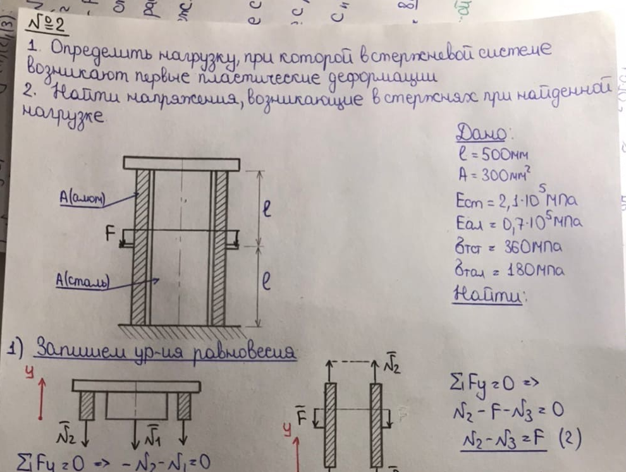 №2
1. Определить нагрузку, при которой в стержневой системе
возникают первые пластические деформации
2. Найти напряжения, возникающие в стержнях при найденной
нагрузке
Дано:
l = 500мм
A = 300мм²
Eст = 2,1·10⁵ МПа
Eал = 0,7·10⁵ МПа
σтст = 360МПа
σтал = 180МПа
Найти:
A(алюм)
l
F
A(сталь)
l
1) Запишем ур-ия равновесия
y
N̄₂ N̄₁ N̄₂
ΣFy = 0 => -N₂-N₁=0
N̄₂
F̄
y
ΣFy = 0 =>
N₂ - F - N₃ = 0
N₂ - N₃ = F (2)